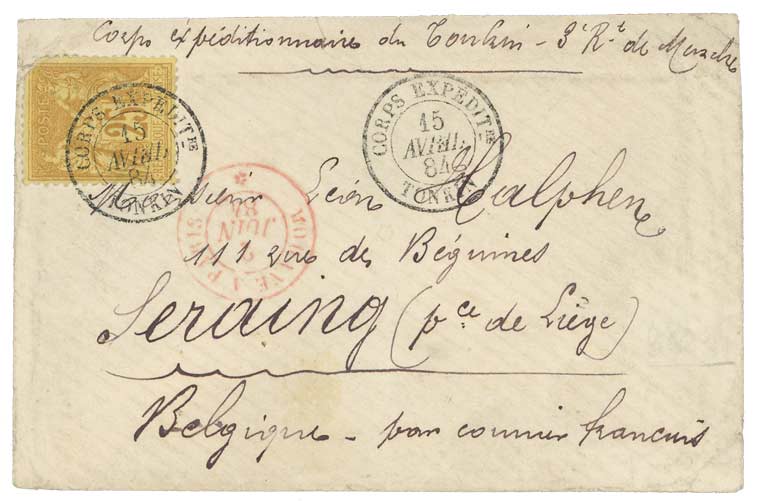 Corps expéditionnaire du Tonkin - 3e Rt. de Marche
POSTES
25
CORPS EXPEDITRE
15
AVRIL
84
TONKIN
CORPS EXPEDITRE
15
AVRIL
84
TONKIN
Monsieur Léon Halphen
MODANE A PARIS
2
JUIN
84
111 rue des Béguines
Seraing (pce. de Liège)
Belgique - par courrier français